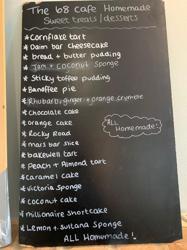 The b8 Cafe Homemade
Sweet treats/desserts
*Cornflake tart
*Daim bar cheesecake
*bread + butter pudding
*Jam + coconut sponge
*Sticky toffee pudding
*Banoffee pie
*Rhubarb, ginger + orange crumble
*Chocolate cake
*orange cake
*Rocky Road
*mars bar slice
*bakewell tart
*Peach + Almond tart
*caramel cake
*victoria sponge
*coconut cake
*millionaire shortcake
*Lemon + sultana Sponge
ALL Homemade!
ALL
Homemade!